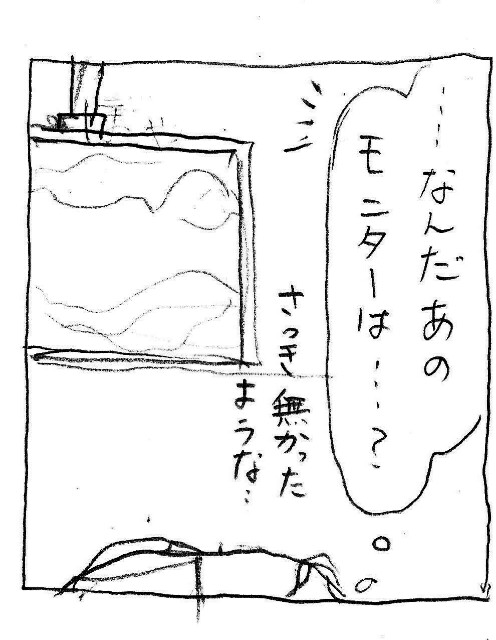 …なんだあの
モニターは…?
さっき無かった
ような…